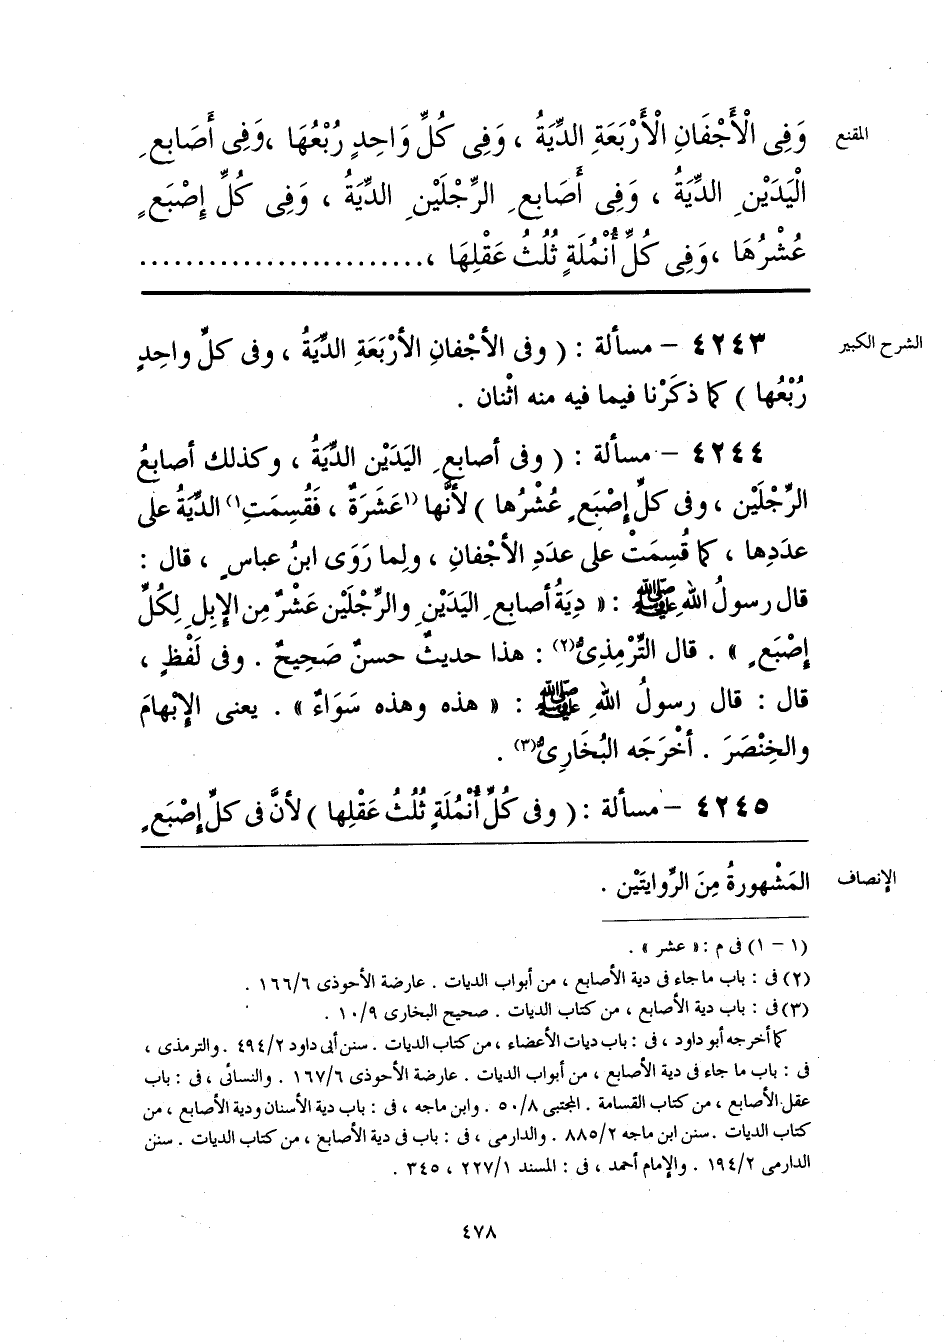 المقنع
وَفِى الْأَجْفَانِ الْأَرْبَعَةِ الدِّيَةُ ، وَفِى كُلِّ وَاحِدٍ رُبْعُهَا ، وَفِى أَصَابِعِ
الْيَدَيْنِ الدِّيَةُ ، وَفِى أَصَابِعِ الرِّجْلَيْنِ الدِّيَةُ ، وَفِى كُلِّ إِصْبَعٍ
عُشْرُهَا ، وَفِى كُلِّ أُنْمُلَةٍ ثُلُثُ عَقْلِهَا ، .........................
الشرح الكبير
٤٢٤٣ – مسألة : ( وفى الأجْفانِ الأرْبَعَةِ الدِّيَةُ ، وفى كلِّ واحِدٍ
رُبْعُها ) كما ذكَرْنا فيما فيه منه اثْنان .
٤٢٤٤ – مسألة : ( وفى أصابعِ اليَدَيْن الدِّيَةُ ، وكذلك أصابعُ
الرِّجْلَيْن ، وفى كلِّ إصْبَعٍ عُشْرُها ) لأنَّها (١عَشَرَةٌ ، فَقُسِمَتِ١) الدِّيَةُ على
عدَدِها ، كما قُسِمَتْ على عدَدِ الأجْفان ، ولِما رَوَى ابنُ عباسٍ ، قال :
قال رسولُ اللهِ ﷺ : « دِيَةُ أصابعِ اليَدَيْنِ والرِّجْلَيْن عَشْرٌ مِن الإِبلِ لِكُلِّ
إصْبَعٍ » . قال التِّرْمِذِىُّ(٢) : هذا حديثٌ حسنٌ صَحِيحٌ . وفى لَفْظٍ ،
قال : قال رسولُ اللهِ ﷺ : « هذه وهذه سَوَاءٌ » . يعنى الإِبْهامَ
والخِنْصَرَ . أخْرَجَه البُخَارِىُّ(٣) .
٤٢٤٥ – مسألة : ( وفى كُلِّ أُنْمُلَةٍ ثُلُثُ عَقْلِها ) لأنَّ فى كلِّ إصْبَعٍ
الإنصاف
المَشْهورةُ مِنَ الرِّوايتَيْن .
(١ – ١) فى م : « عشر » .
(٢) فى : باب ما جاء فى دية الأصابع ، من أبواب الديات . عارضة الأحوذى ١٦٦/٦ .
(٣) فى : باب دية الأصابع ، من كتاب الديات . صحيح البخارى ١٠/٩ .
كما أخرجه أبو داود ، فى : باب ديات الأعضاء ، من كتاب الديات . سنن أبى داود ٤٩٤/٢ . والترمذى ،
فى : باب ما جاء فى دية الأصابع ، من أبواب الديات . عارضة الأحوذى ١٦٧/٦ . والنسائى ، فى : باب
عقل الأصابع ، من كتاب القسامة . المجتبى ٥٠/٨ . وابن ماجه ، فى : باب دية الأسنان ودية الأصابع ، من
كتاب الديات . سنن ابن ماجه ٨٨٥/٢ . والدارمى ، فى : باب فى دية الأصابع ، من كتاب الديات . سنن
الدارمى ١٩٤/٢ . والإمام أحمد ، فى : المسند ٢٢٧/١ ، ٣٤٥ .
٤٧٨